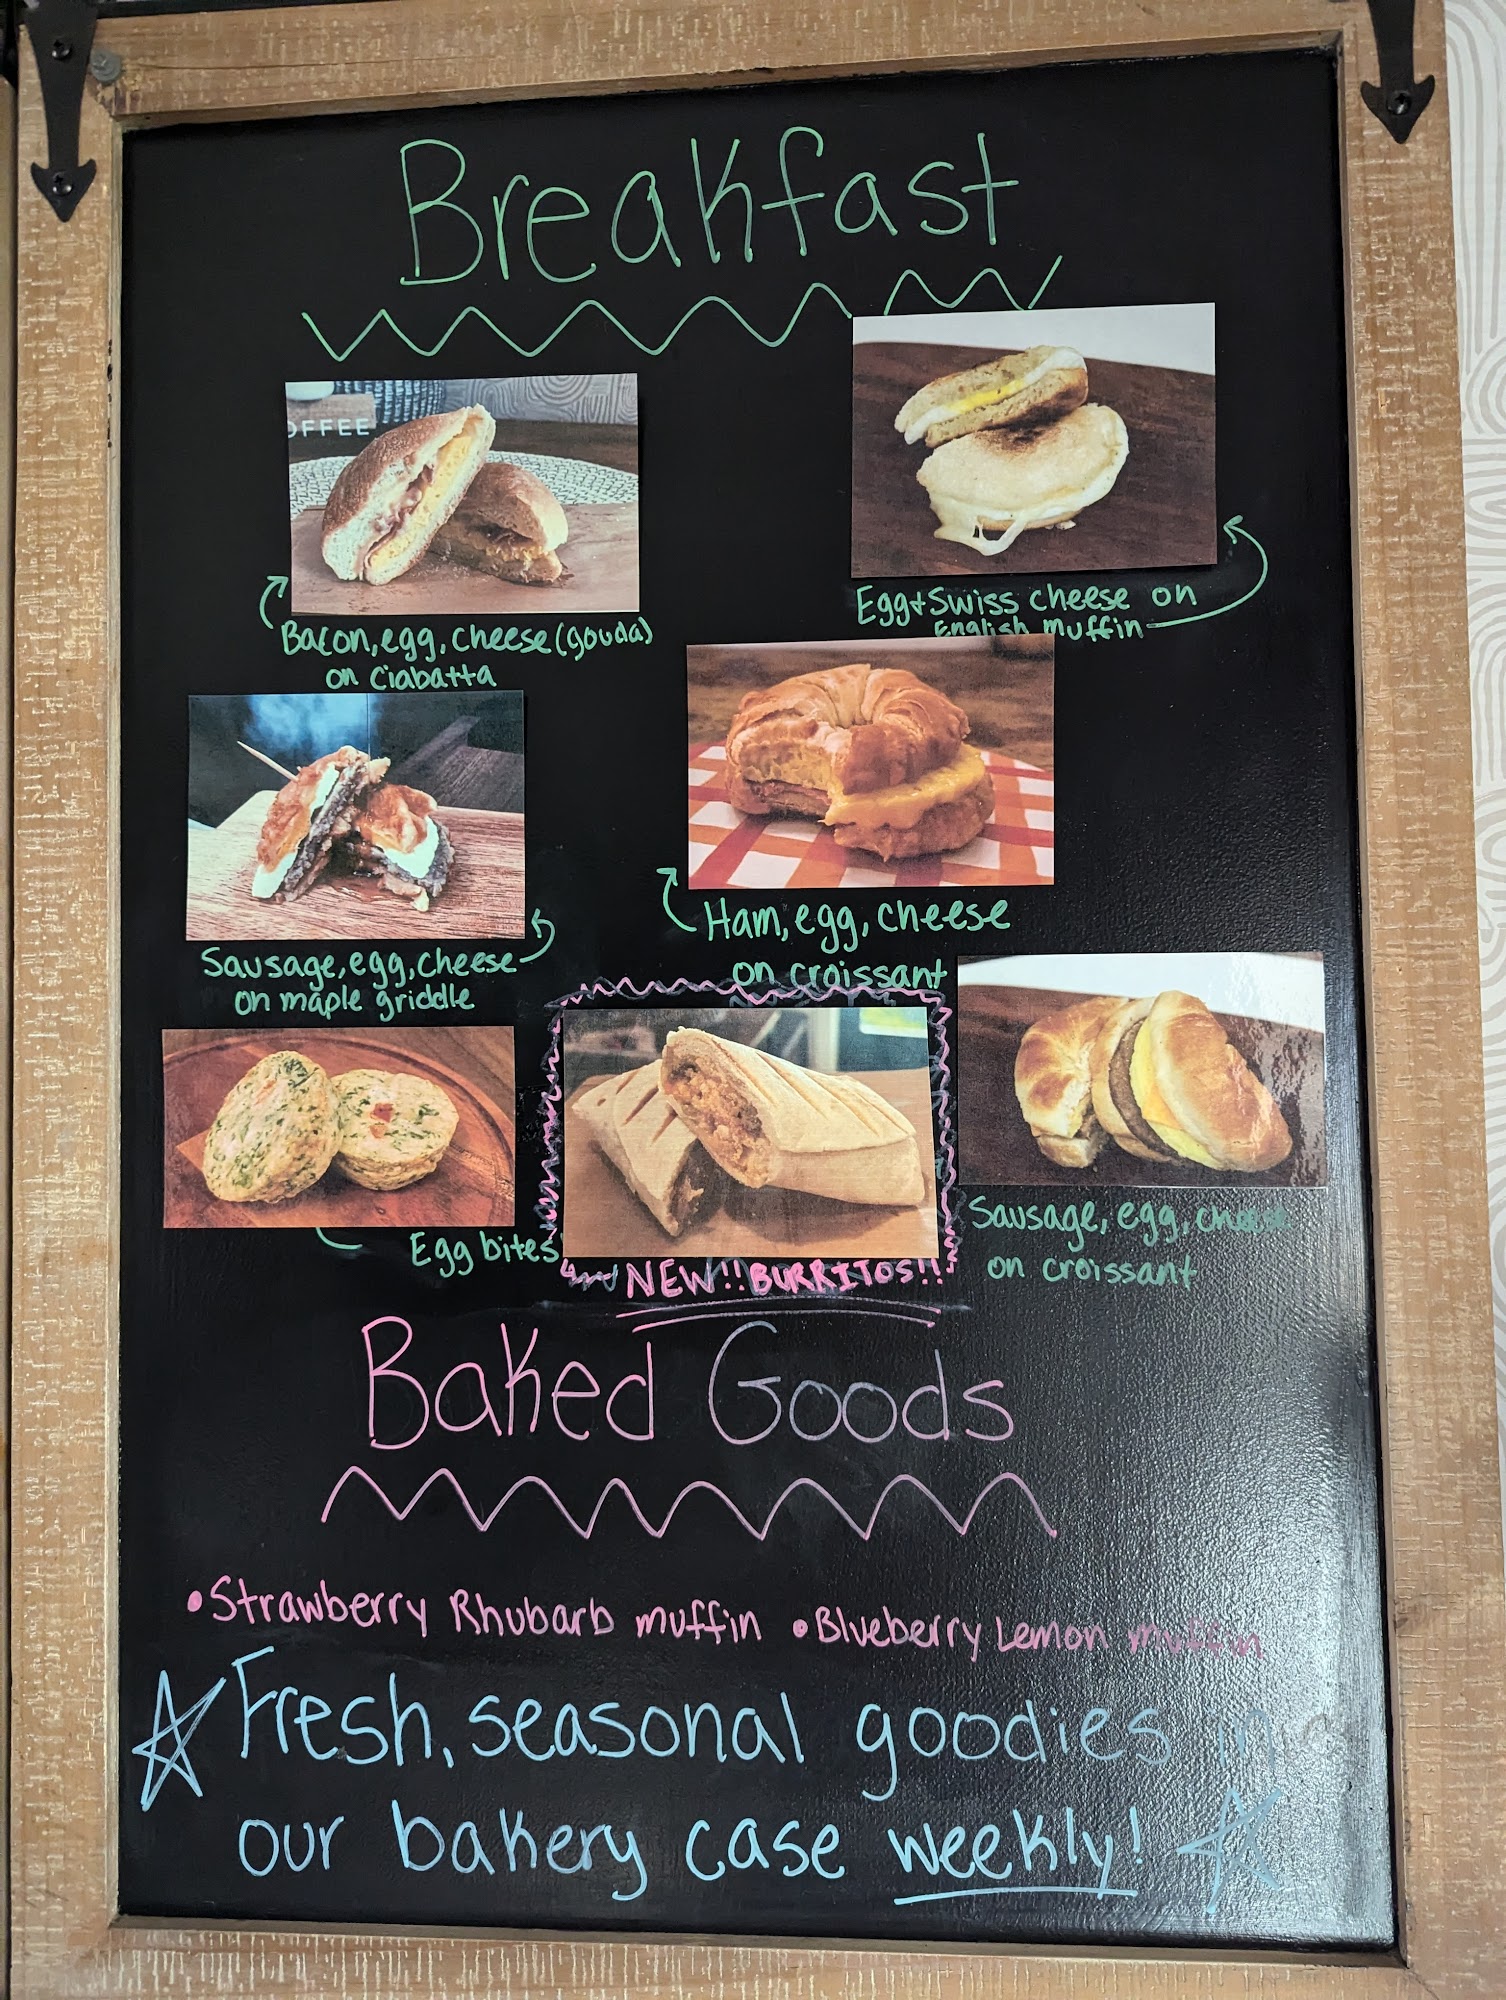 Breakfast
OFFEE
Bacon, egg, cheese (gouda)
on ciabatta
Egg + Swiss cheese on
English muffin
Sausage, egg, cheese
on maple griddle
Ham, egg, cheese
on croissant
Egg bites
NEW!! BURRITOS!!
Sausage, egg, cheese
on croissant
Baked Goods
• Strawberry Rhubarb muffin • Blueberry Lemon muffin
Fresh, seasonal goodies in
our bakery case weekly!